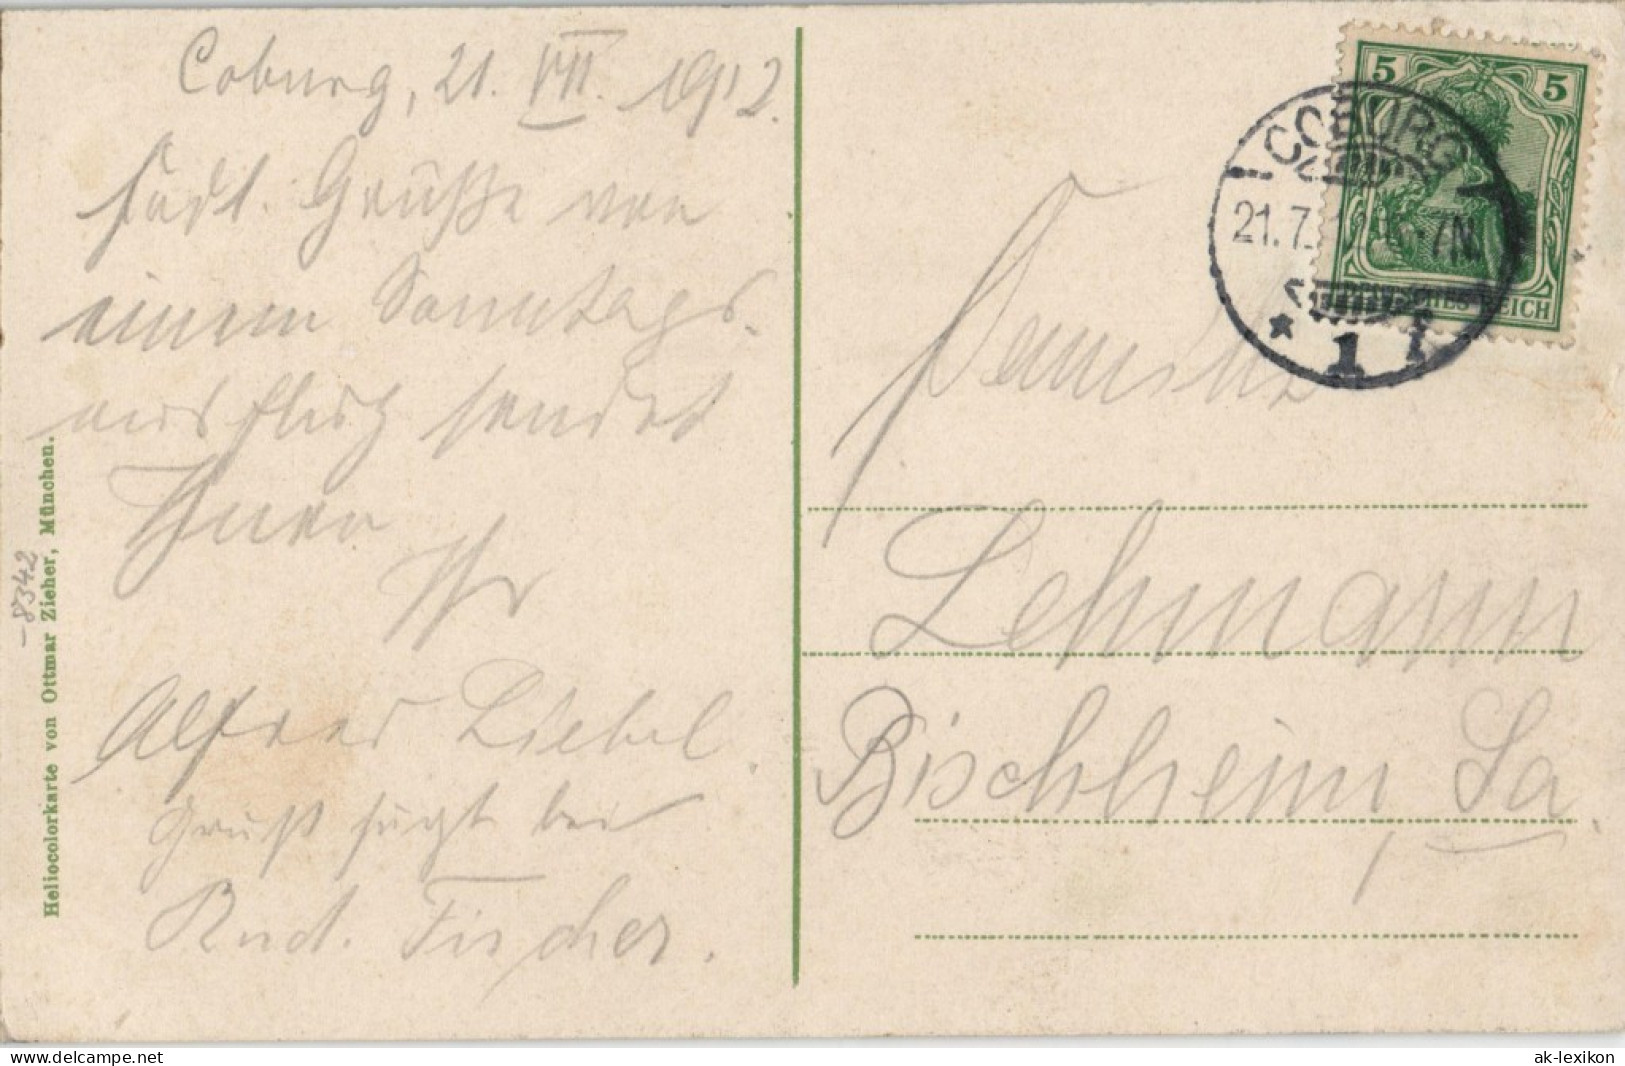 Coburg, 21. VII. 1912.
Grüße von
einem Sonntags-
ausflug sendet
Ihnen
Ihr
Alfred Liebel.
Gruß fügt bei
Rud. Fischer.
Heliocolorkarte von Ottmar Zieher, München.
-8342
5 5
DEUTSCHES REICH
COBURG
21.7.
7N
* 1
Lehmann
Bischheim, Sa.
www.delcampe.net
ak-lexikon